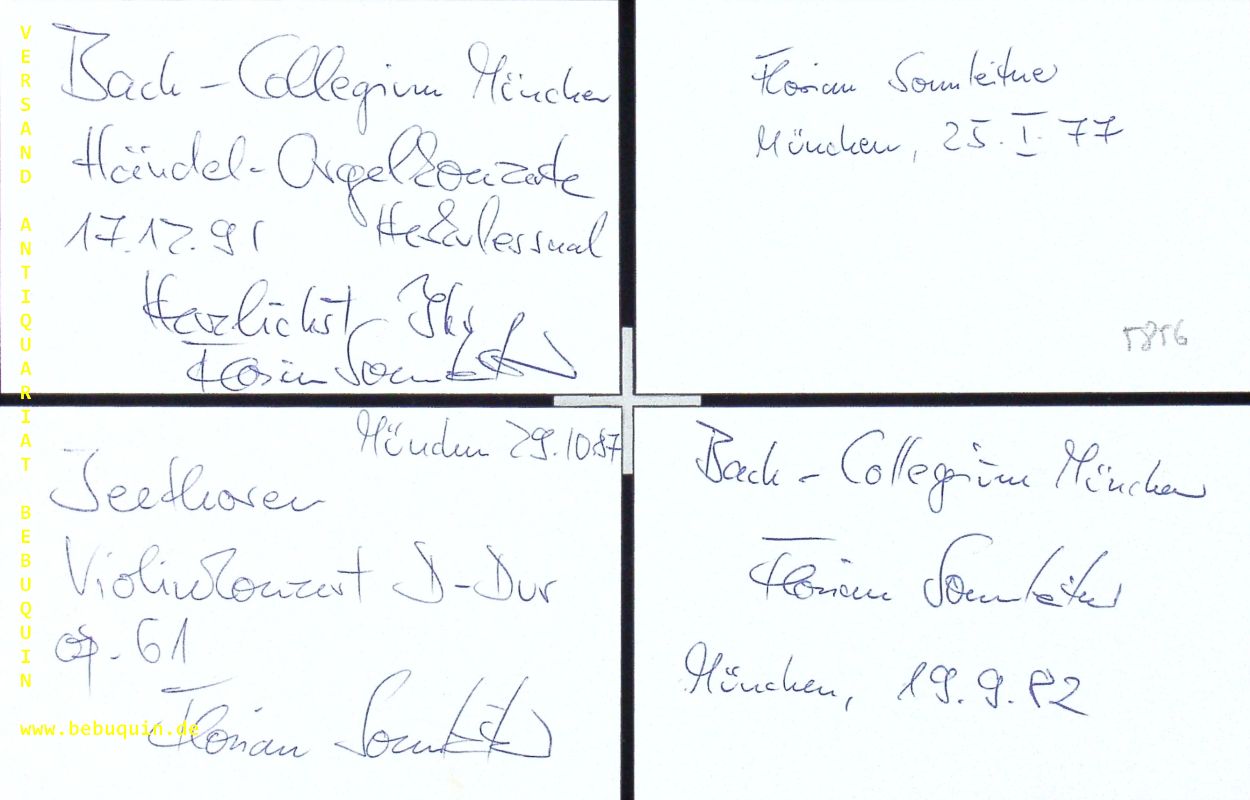 VERSAND ANTIQUARIAT BEBUQUIN
www.bebuquin.de
Bach-Collegium München
Händel-Orgelkonzerte
17.12.91 Herkulessaal
Herzlichst Ihr
Florian Sonnleitner
Florian Sonnleitner
München, 25. I. 77
5856
München 29.10.87
Beethoven
Violinkonzert D-Dur
op. 61
Florian Sonnleitner
Bach-Collegium München
Florian Sonnleitner
München, 19.9.82